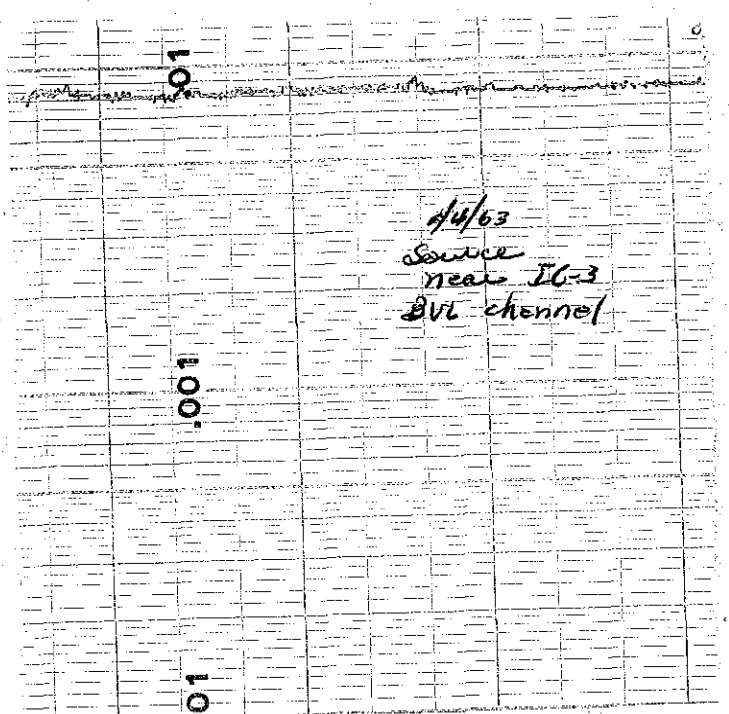 .01
source
near IC-3
BVL channel
.001
01